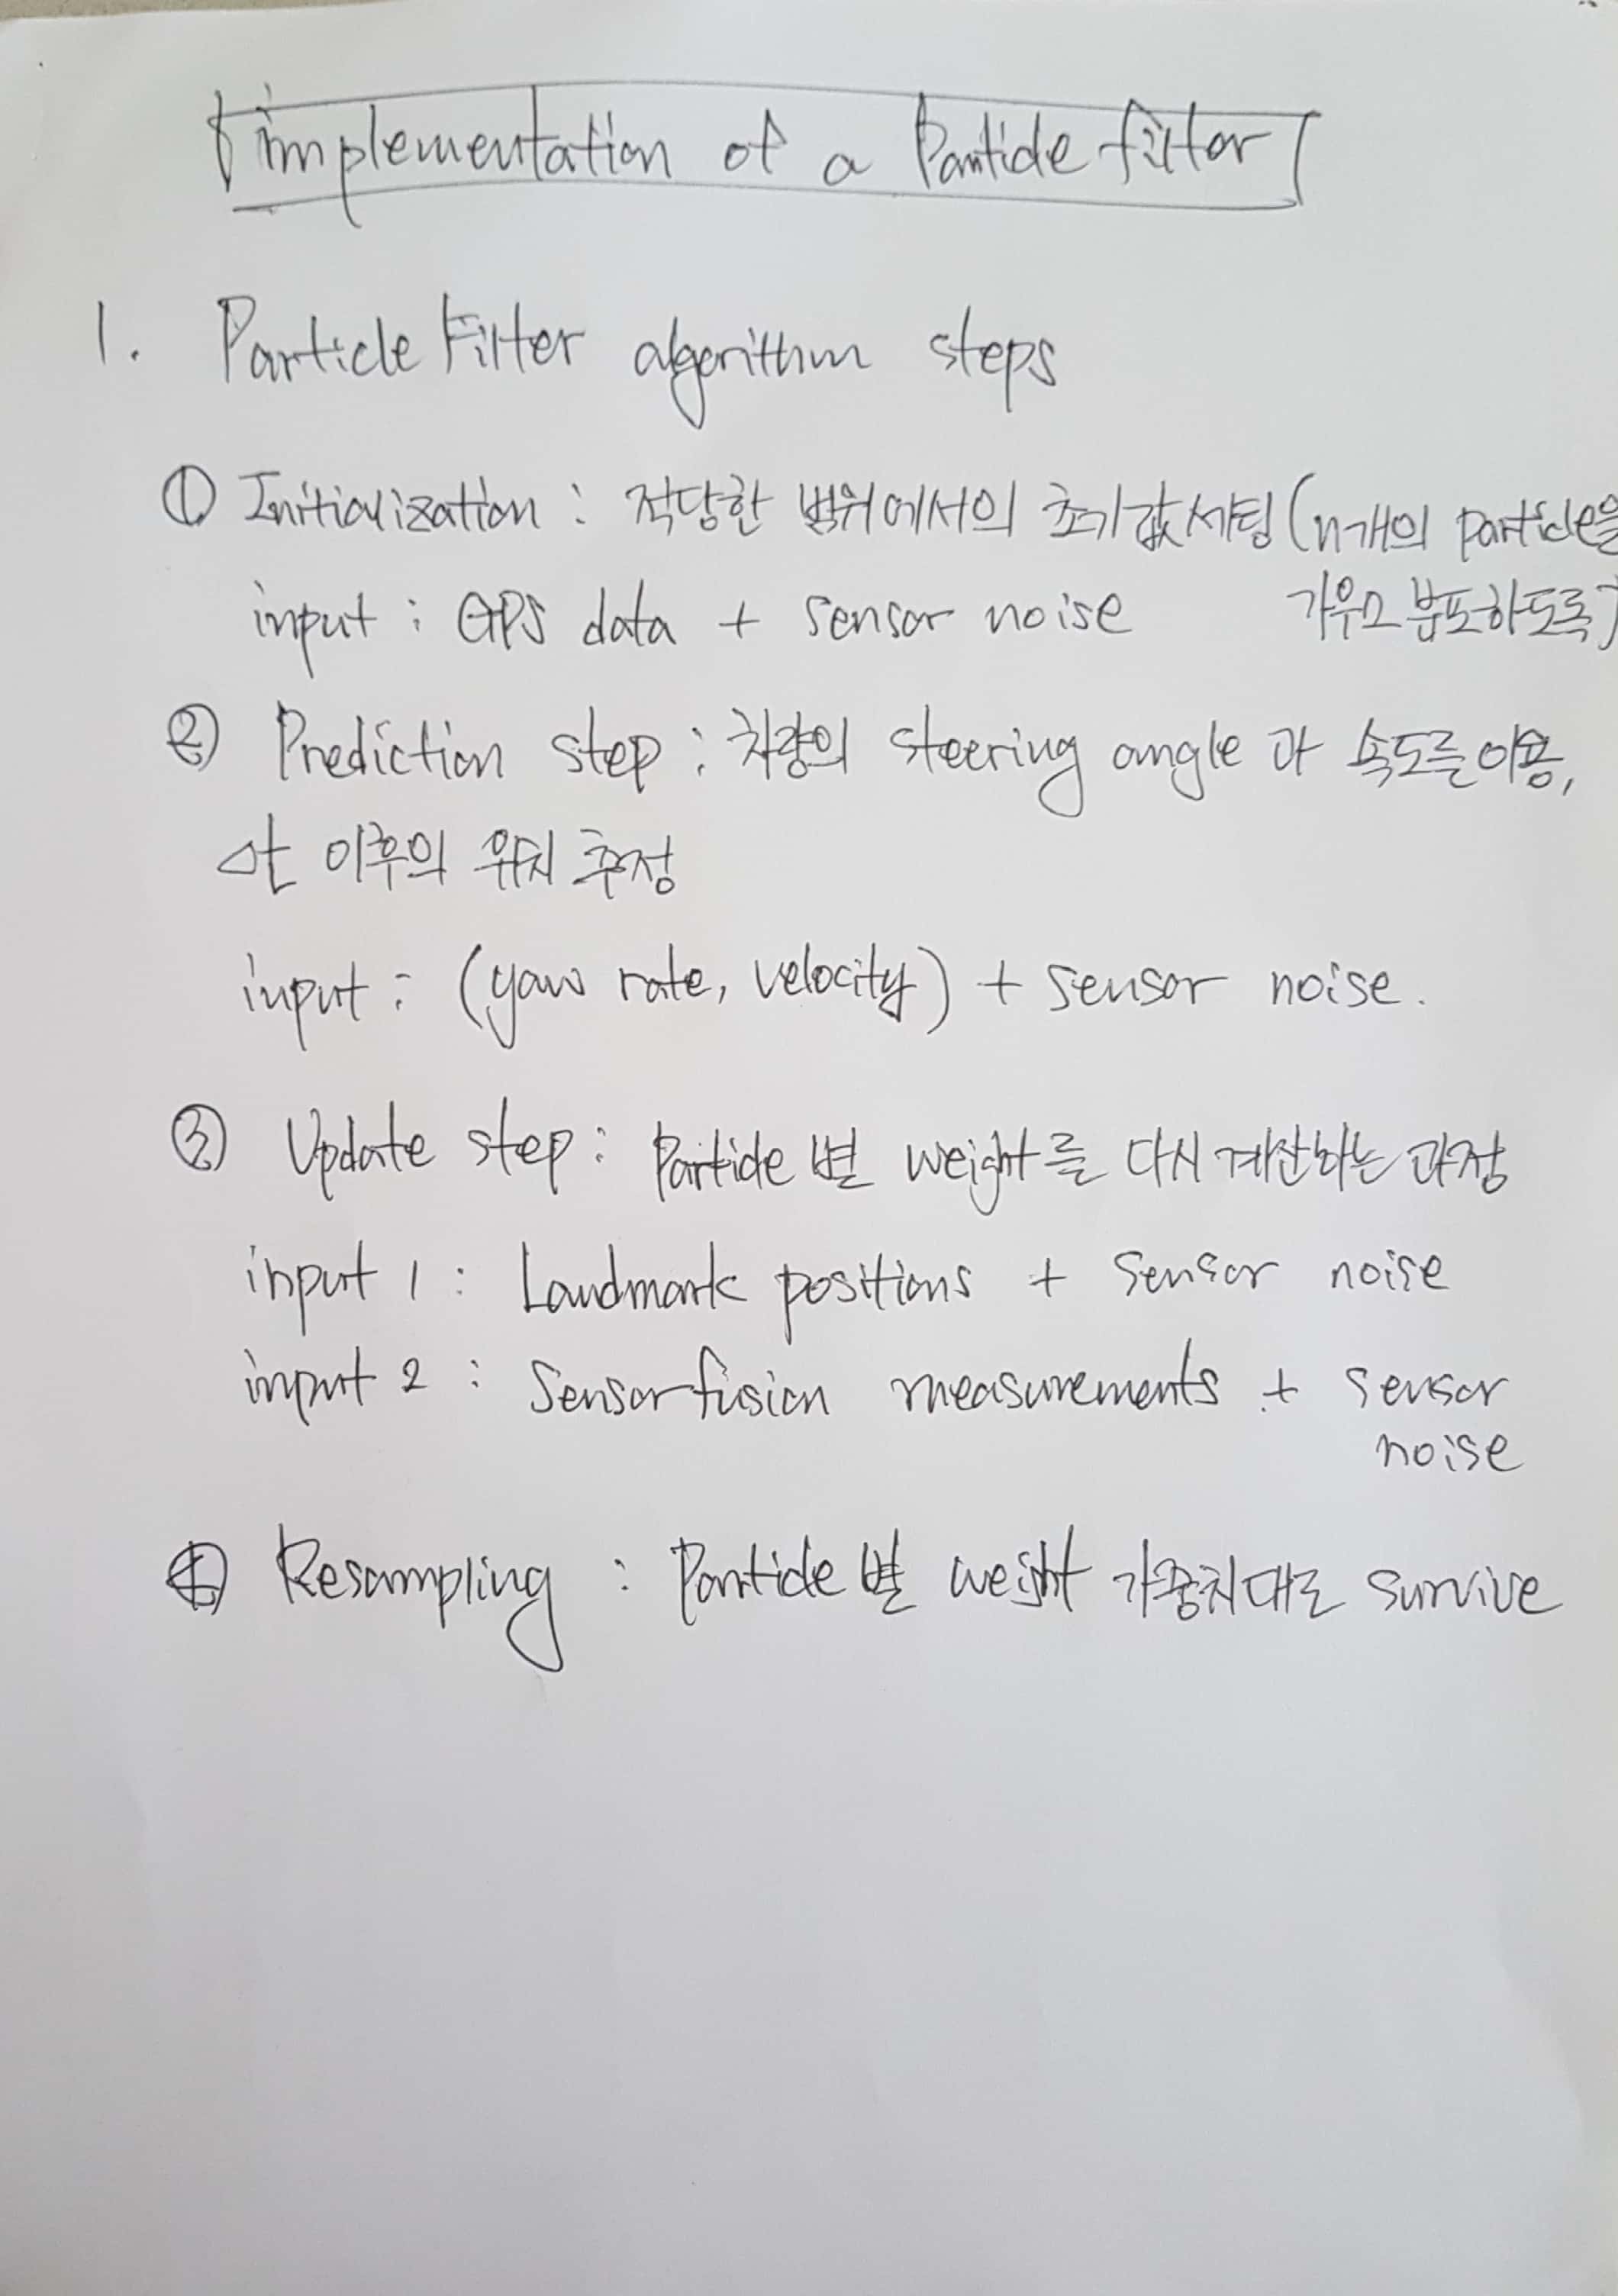 implementation of a Particle filter
1. Particle Filter algorithm steps
① Initialization : 적당한 범위에서의 초기값 세팅 (n개의 particle을
input : GPS data + sensor noise 가우스 분포하도록)
② Prediction step : 차량의 steering angle 과 속도를 이용,
Δt 이후의 위치 추정
input : (yaw rate, velocity) + sensor noise.
③ Update step : Particle 별 weight를 다시 계산하는 과정
input 1 : Landmark positions + sensor noise
input 2 : Sensor fusion measurements + sensor
noise
④ Resampling : Particle 별 weight 가중치대로 survive